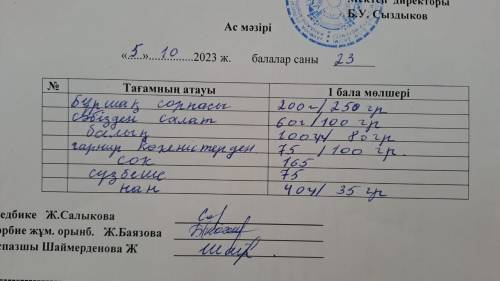 Мектеп директоры
Б.У. Сыздыков
Ас мәзірі
«5» 10 2023 ж. балалар саны 23
№ Тағамның атауы 1 бала мөлшері
бұршақ сорпасы 200г/250гр
сәбізден салат 60г/100гр
балық 100гр/80гр
гарнир көкөністерден 75/100гр.
сок 165
сүзбеше 75
нан 40г/35гр
едбике Ж.Салыкова
әрбие жұм. орынб. Ж.Баязова
спазшы Шаймерденова Ж